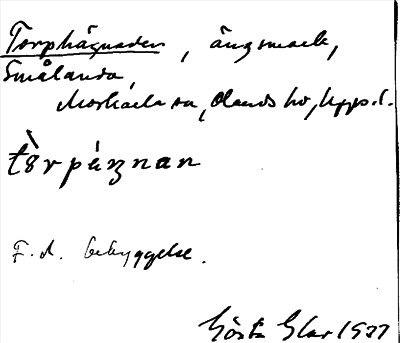 Torphägnaden, ängsmark,
Smålanda,
Morkarla sn, Olands hd, Uppl.
F.d. bebyggelse.
Gösta Glar 1937